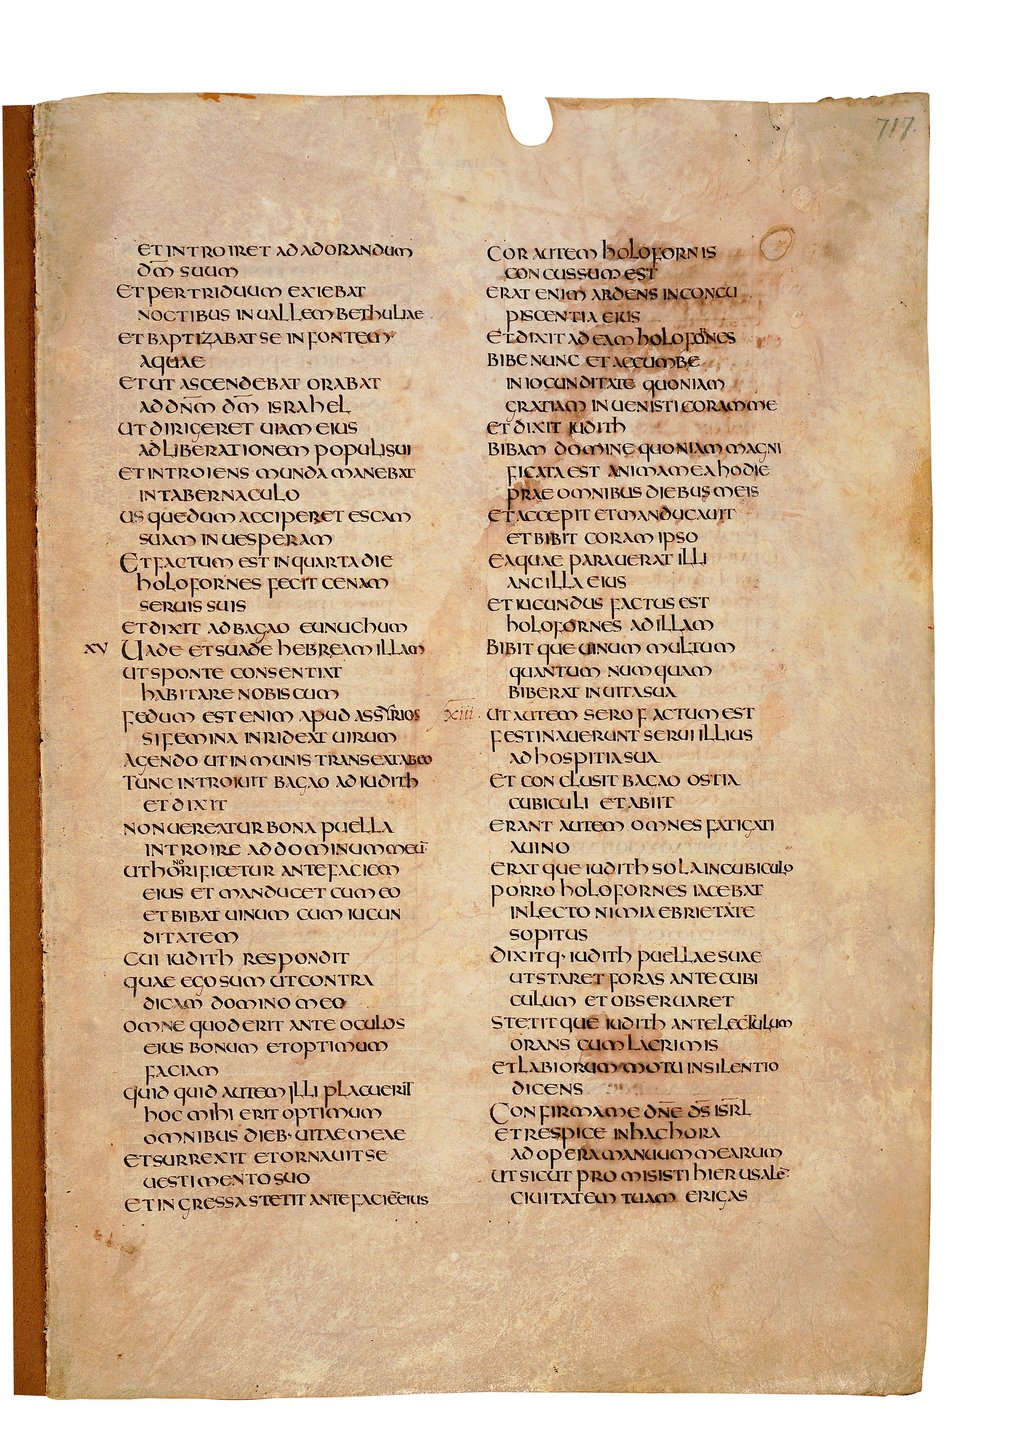 717.
ET INTROIRET AD ADORANDUM
DM̅ SUUM
ET PER TRIDUUM EXIEBAT
NOCTIBUS IN UALLEM BETHULIAE
ET BAPTIZABAT SE IN FONTEM
AQUAE
ET UT ASCENDEBAT ORABAT
AD DN̅M DM̅ ISRAHEL
UT DIRIGERET UIAM EIUS
AD LIBERATIONEM POPULI SUI
ET INTROIENS MUNDA MANEBAT
IN TABERNACULO
US QUEDUM ACCIPERET ESCAM
SUAM IN UESPERAM
ET FACTUM EST IN QUARTA DIE
HOLOFORNES FECIT CENAM
SERUIS SUIS
ET DIXIT AD BAGAO EUNUCHUM
XV UADE ET SUADE HEBREAM ILLAM
UT SPONTE CONSENTIAT
HABITARE NOBISCUM
FEDUM EST ENIM APUD ASSYRIOS
SI FEMINA INRIDEAT UIRUM
AGENDO UT INMUNIS TRANSEAT AB EO
TUNC INTROIUIT BAGAO AD IUDITH
ET DIXIT
NON UEREATUR BONA PUELLA
INTROIRE AD DOMINUM MEU̅
UT HONORIFICETUR ANTE FACIEM
EIUS ET MANDUCET CUM EO
ET BIBAT UINUM CUM IUCUN
DITATEM
CUI IUDITH RESPONDIT
QUAE EGO SUM UT CONTRA
DICAM DOMINO MEO
OMNE QUOD ERIT ANTE OCULOS
EIUS BONUM ET OPTIMUM
FACIAM
QUID QUID AUTEM ILLI PLACUERIT
HOC MIHI ERIT OPTIMUM
OMNIBUS DIEB· UITAE MEAE
ET SURREXIT ET ORNAUIT SE
UESTIMENTO SUO
ET INGRESSA STETIT ANTE FACIE̅ EIUS
COR AUTEM HOLOFORNIS
CONCUSSUM EST
ERAT ENIM ARDENS IN CONCU
PISCENTIA EIUS
ET DIXIT AD EAM HOLOFORNES
BIBE NUNC ET ACCUMBE
IN IOCUNDITATE QUONIAM
GRATIAM INUENISTI CORAM ME
ET DIXIT IUDITH
BIBAM DOMINE QUONIAM MAGNI
FICATA EST ANIMA MEA HODIE
PRAE OMNIBUS DIEBUS MEIS
ET ACCEPIT ET MANDUCAUIT
ET BIBIT CORAM IPSO
EA QUAE PARAUERAT ILLI
ANCILLA EIUS
ET IUCUNDUS FACTUS EST
HOLOFORNES AD ILLAM
BIBIT QUE UINUM MULTUM
QUANTUM NUMQUAM
BIBERAT IN UITA SUA
xiii. UT AUTEM SERO FACTUM EST
FESTINAUERUNT SERUI ILLIUS
AD HOSPITIA SUA
ET CONCLUSIT BAGAO OSTIA
CUBICULI ET ABIIT
ERANT AUTEM OMNES FATIGATI
A UINO
ERAT QUE IUDITH SOLA IN CUBICULO
PORRO HOLOFORNES IACEBAT
IN LECTO NIMIA EBRIETATE
SOPITUS
DIXIT Q· IUDITH PUELLAE SUAE
UT STARET FORAS ANTE CUBI
CULUM ET OBSERUARET
STETIT QUE IUDITH ANTE LECTULUM
ORANS CUM LACRIMIS
ET LABIORUM MOTU IN SILENTIO
DICENS
CONFIRMA ME DN̅E DS̅ ISR̅L
ET RESPICE IN HAC HORA
AD OPERA MANUUM MEARUM
UT SICUT PROMISISTI HIERUSALE̅
CIUITATEM TUAM ERIGAS